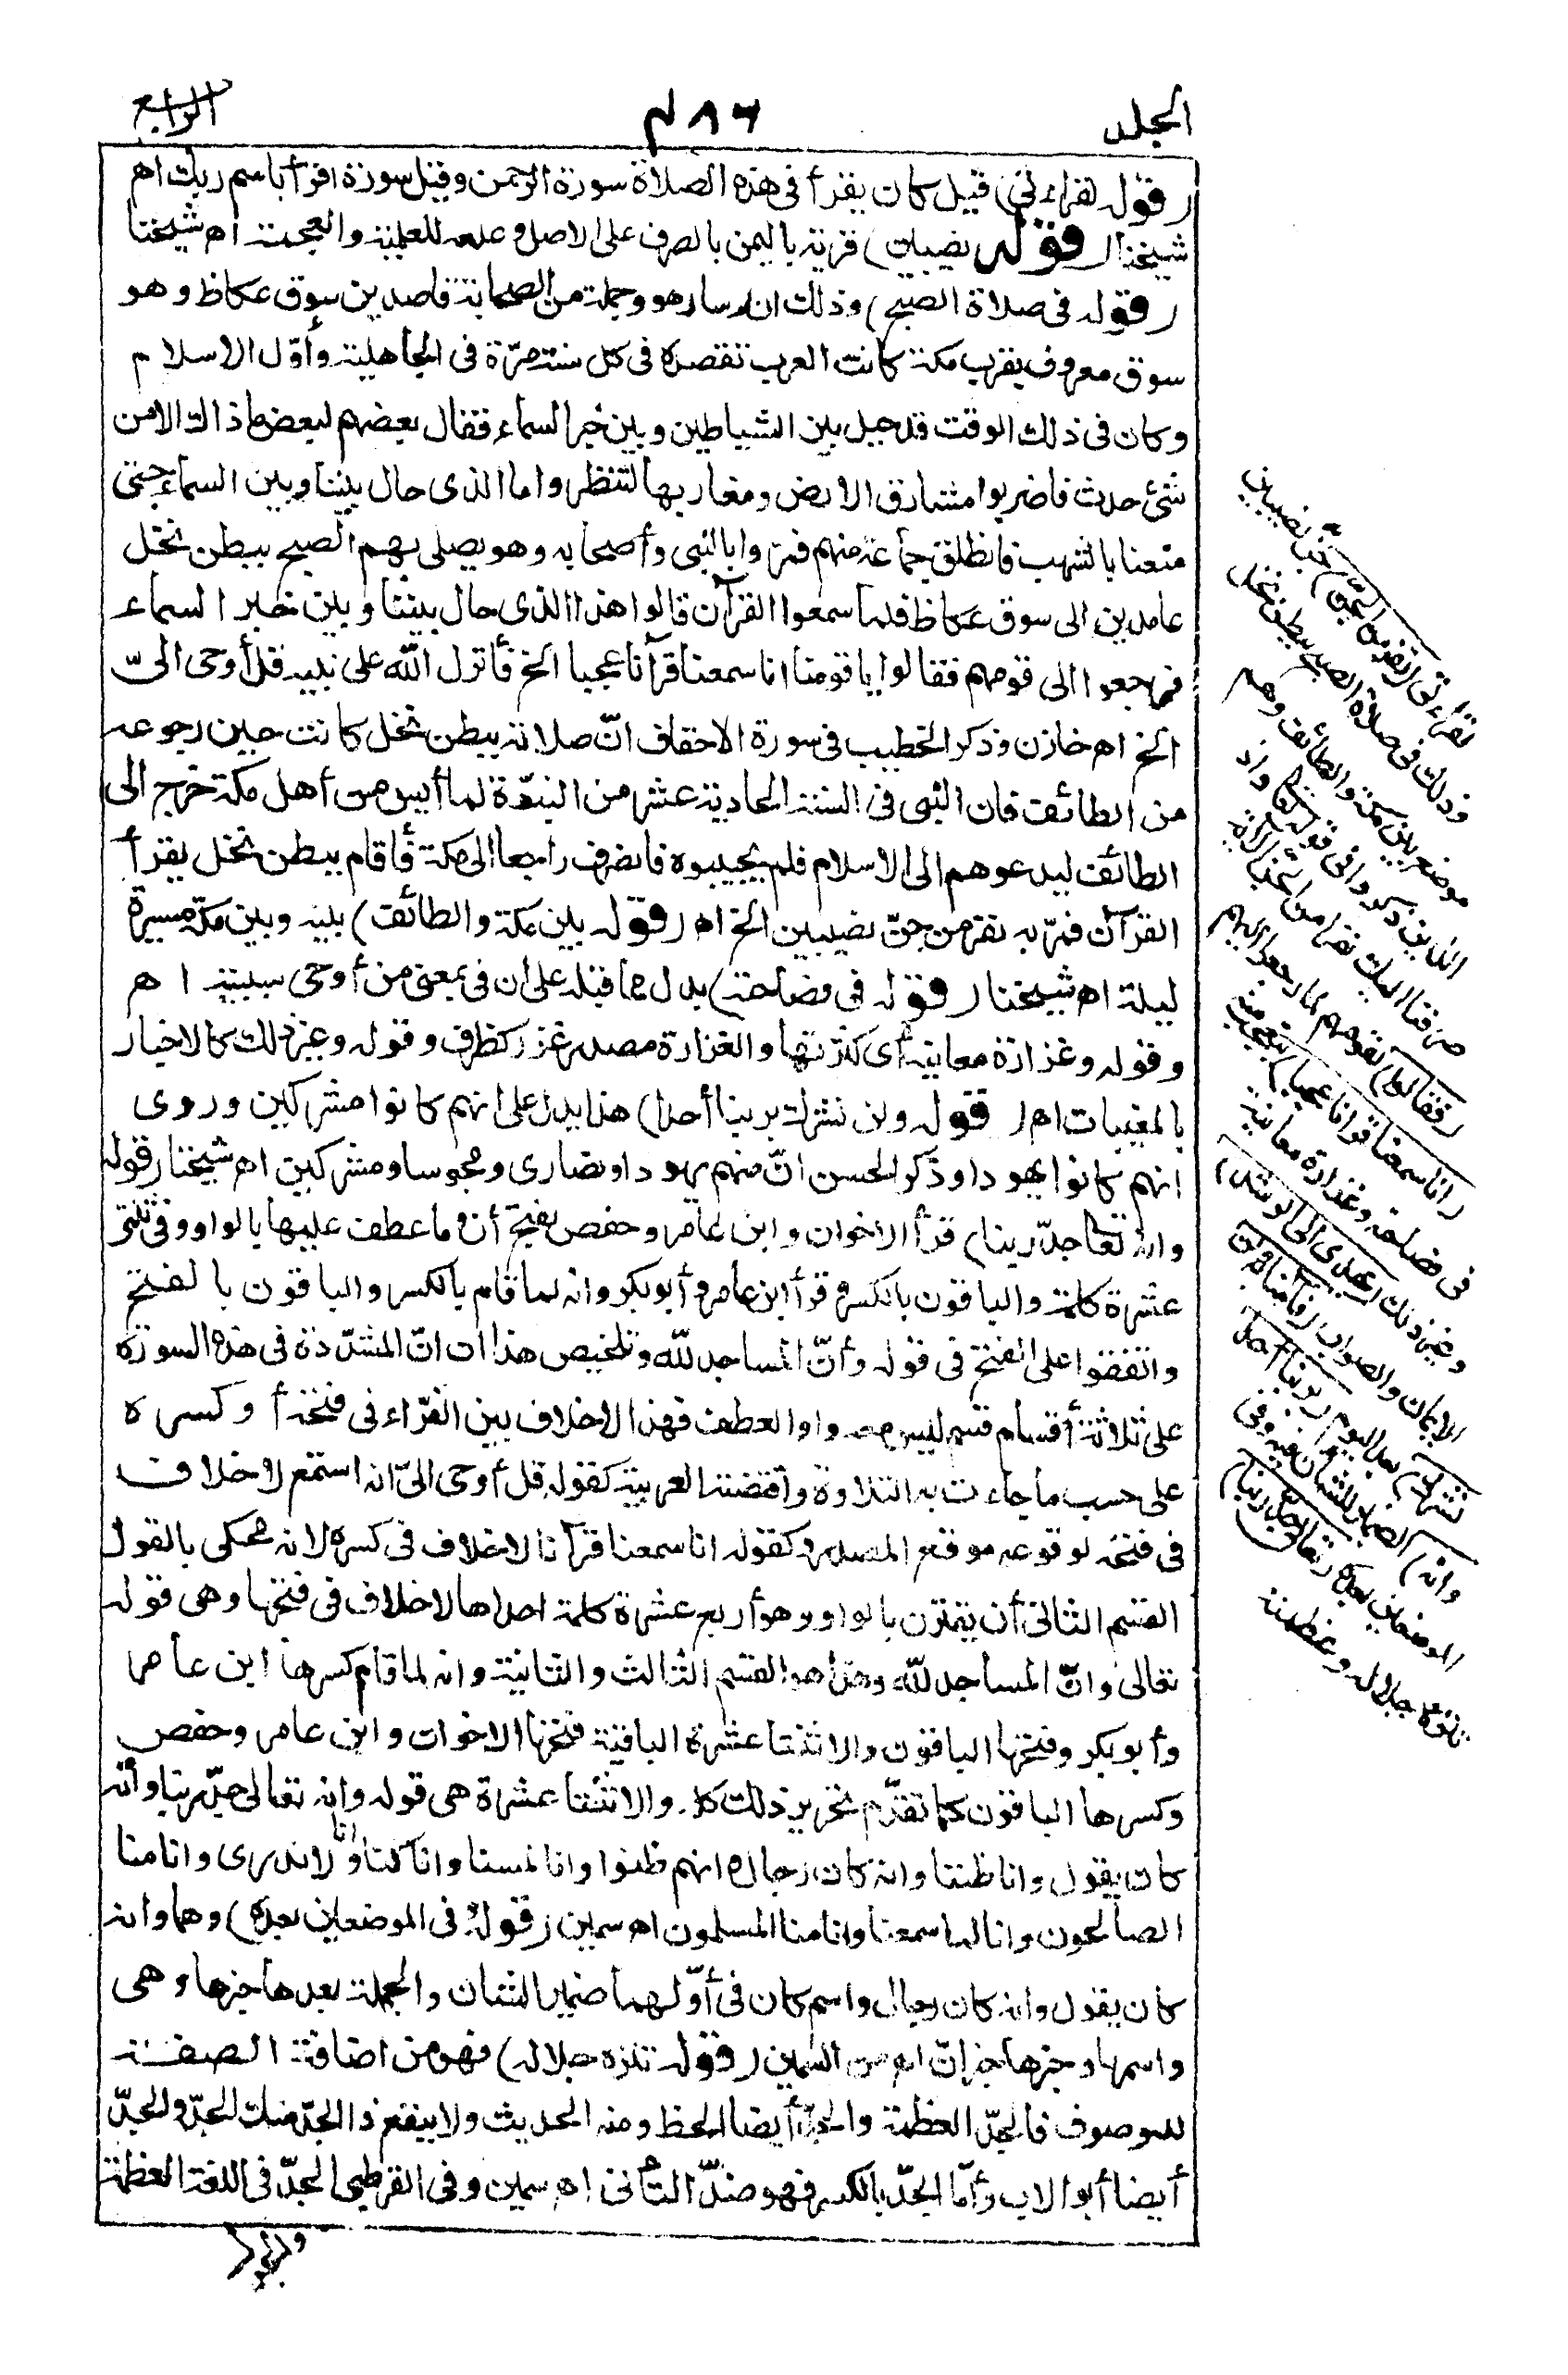 المجلد
٤٨٦
الرابع
(قوله لقراءتي) قيل كان يقرأ في هذه الصلاة سورة الرحمن وقيل سورة اقرأ باسم ربك اه
شيخنا (قوله نصيبين) قرية باليمن بالصرف على الاصل وعدمه للعلمية والعجمة اه شيخنا
(قوله في صلاة الصبح) وذلك انه سار هو وجملة من الصحابة قاصدين سوق عكاظ وهو
سوق معروف بقرب مكة كانت العرب تقصده في كل سنة مرّة في الجاهلية وأوّل الاسلام
وكان في ذلك الوقت قد حيل بين الشياطين وبين خبر السماء فقال بعضهم لبعض ماذاك الا من
شئ حدث فاضربوا مشارق الارض ومغاربها لتنظروا ما الذي حال بيننا وبين السماء حتى
منعنا بالشهب فانطلق جماعة منهم فمرّوا بالنبي وأصحابه وهو يصلى بهم الصبح ببطن نخل
عامدين الى سوق عكاظ فلما سمعوا القرآن قالوا هذا الذي حال بيننا وبين خبر السماء
فرجعوا الى قومهم فقالوا يا قومنا انا سمعنا قرآنا عجبا الخ فأنزل الله على نبيه قل أوحى الىّ
الخ اه خازن وذكر الخطيب في سورة الاحقاف انّ صلاته ببطن نخل كانت حين رجوعه
من الطائف فان النبى في السنة الحادية عشر من النبوّة لما أيس من أهل مكة خرج الى
الطائف ليدعوهم الى الاسلام فلم يجيبوه فانصرف راجعا الى مكة فأقام ببطن نخل يقرأ
القرآن فمرّ به نفر من جنّ نصيبين الخ اه (قوله بين مكة والطائف) بينه وبين مكة مسيرة
ليلة اه شيخنا (قوله في فصاحته) بدل مما قبله على أن في بمعنى من أو حتى سببية اه
وقوله وغزارة معانيه أى كثرتها والغزارة مصدر غزر كظرف وقوله وغير ذلك كالاخبار
بالمغيبات اه (قوله ولن نشرك بربنا أحدا) هذا يدل على انهم كانوا مشركين وروى
انهم كانوا يهودا وذكر الحسن انّ منهم يهودا ونصارى ومجوسا ومشركين اه شيخنا (قوله
وانه تعالى جدّ ربنا) قرأ الاخوان وابن عامر وحفص بفتح أن وما عطف عليها بالواو وفي ثنتى
عشرة كلمة والباقون بالكسر وقرأ ابن عامر وأبو بكر وانه لما قام بالكسر والباقون بالفتح
واتفقوا على الفتح في قوله وأنّ المساجد لله وتلخيص هذا ان انّ المشدّدة في هذه السورة
على ثلاثة أقسام قسم ليس معه واو العطف فهذا لا خلاف بين القرّاء في فتحه أو كسره
على حسب ما جاءت به التلاوة واقتضته العربية كقوله قل أوحى الىّ انه استمع لا خلاف
في فتحه لوقوعه موقع المصدر وكقوله انا سمعنا قرآنا لا خلاف في كسره لانه محكى بالقول
القسم الثاني أن يقترن بالواو وهو أربع عشرة كلمة احداها لا خلاف في فتحها وهي قوله
تعالى وانّ المساجد لله وهذا هو القسم الثالث والثانية وانه لما قام كسرها ابن عامر
وأبو بكر وفتحها الباقون والاثنتا عشرة الباقية فتحها الاخوان وابن عامر وحفص
وكسرها الباقون كما تقدّم تحرير ذلك كله والاثنتا عشرة هي قوله وانه تعالى جدّ ربنا وأنه
كان يقول وانا ظننا وانه كان رجال وانهم ظنوا وانا لمسنا وانا كنا وانا لا ندرى وانا منا
الصالحون وانا لما سمعنا وانا منا المسلمون اه سمين (قوله في الموضعين بعده) وهما وانه
كان يقول وانه كان رجال واسم كان في أوّلهما ضمير الشان والجملة بعدها خبرها وهي
واسمها وخبرها خبر انّ اه من السمين (قوله تنزه جلاله) فهو من اضافة الصفة
للموصوف فالجدّ العظمة والجدّ أيضا الحظ ومنه الحديث ولا ينفع ذا الجدّ منك الجدّ والجدّ
أيضا أبو الاب وأمّا الجدّ بالكسر فهو ضدّ التأنى اه سمين وفي القرطبى الجدّ في اللغة العظمة
لقراءتى (نفر من الجنّ) جنّ نصيبين
وذلك في صلاة الصبح ببطن نخل
موضع بين مكة والطائف وهم
الذين ذكروا في قوله تعالى واذ
صرفنا اليك نفرا من الجن الآية
(فقالوا) لقومهم لما رجعوا اليهم
(انا سمعنا قرآنا عجبا) يتعجب منه
في فصاحته وغزارة معانيه
وغير ذلك (يهدى الى الرشد)
الايمان والصواب (فآمنا به ولن
نشرك) بعد اليوم (بربنا أحدا
وانه) الضمير للشان فيه وفي
الموضعين بعده (تعالى جدّ ربنا)
تنزه جلاله وعظمته